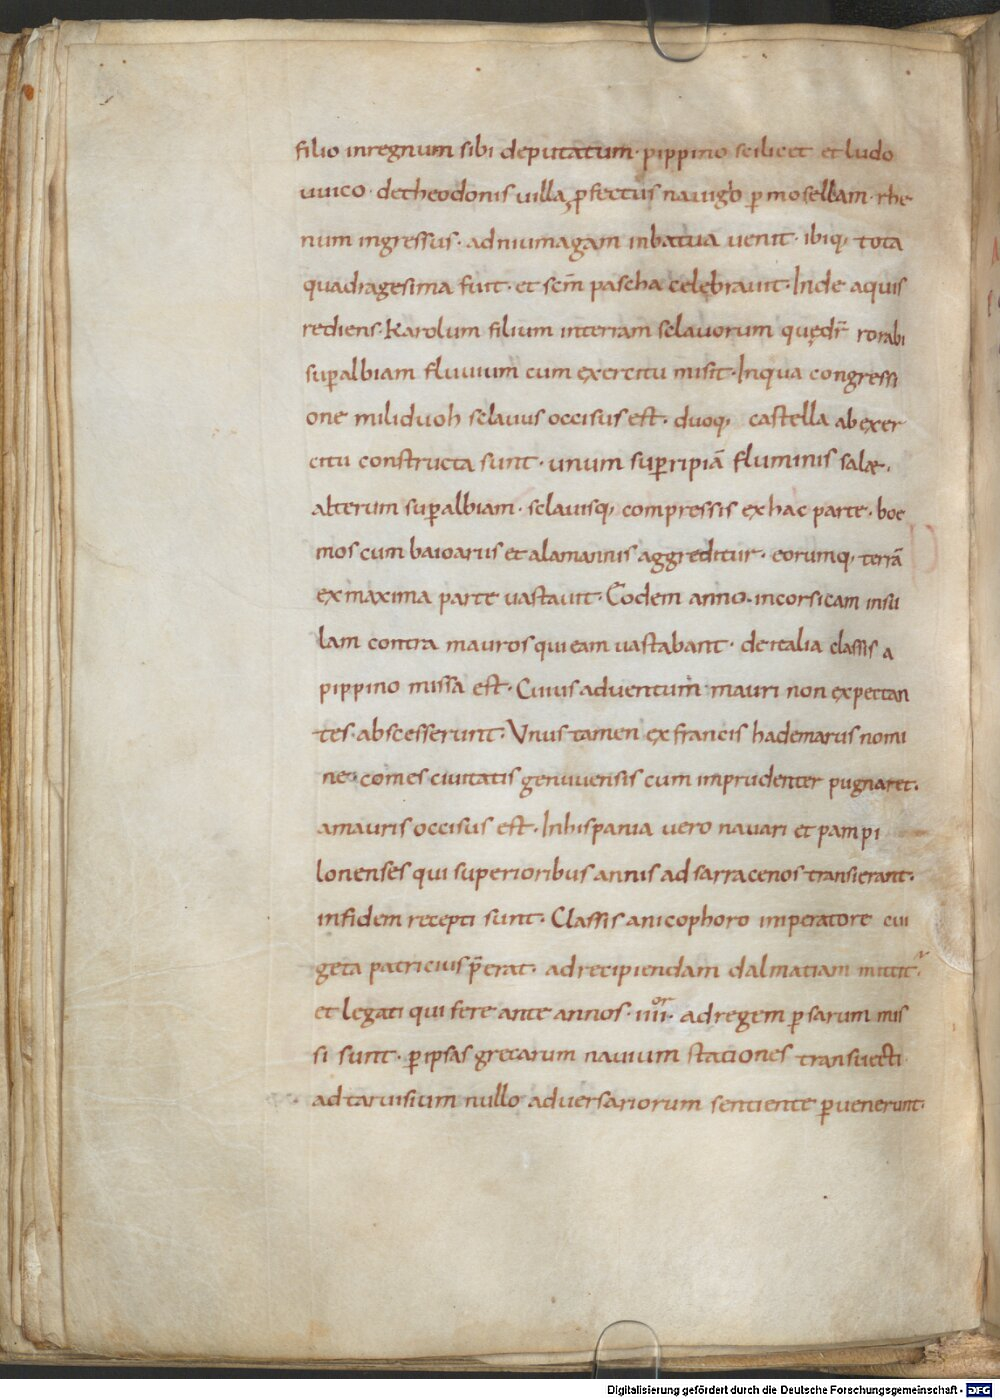 filio inregnum sibi deputatum· pippino scilicet et ludo
uuico· detheodonis uilla, ꝓfectus nauigio ꝑmosellam· rhe
num ingressus· adniumagam inbatua uenit· ibiq; tota
quadragesima fuit· et scm̄ pascha celebrauit· Inde aquis
rediens· Karolum filium interram sclauorum quędr̄ rorabi
suꝑalbiam fluuium cum exercitu misit· Inqua congressi
one miliduoh sclauus occisus est· duoq; castella abexer
citu constructa sunt· unum suꝑripiā fluminis salæ·
alterum suꝑalbiam· sclauisq; compressis exhac parte· boe
mos cum baioariis et alamannis aggreditur· eorumq; terrā
exmaxima parte uastauit· Eodem anno· incorsicam insu
lam contra mauros qui eam uastabant· deitalia classis a
pippino missa est· Cuius aduentum mauri non expectan
tes· abscesserunt· Vnus tamen exfrancis hademarus nomi
ne· comes ciuitatis genuuensis cum imprudenter pugnaret·
amauris occisus est· Inhispania uero nauari et pampi
lonenses qui superioribus annis ad sarracenos transierant·
infidem recepti sunt· Classis anicophoro imperatore cui
geta patricius p̄erat· adrecipiendam dalmatiam mittit᷑·
et legati qui fere ante annos· iiii·ᵒʳ adregem ꝑsarum mis
si sunt· ꝑipsas grecarum nauium stationes transuecti
adtaruisium nullo aduersariorum sentiente ꝑuenerunt·
Digitalisierung gefördert durch die Deutsche Forschungsgemeinschaft - DFG